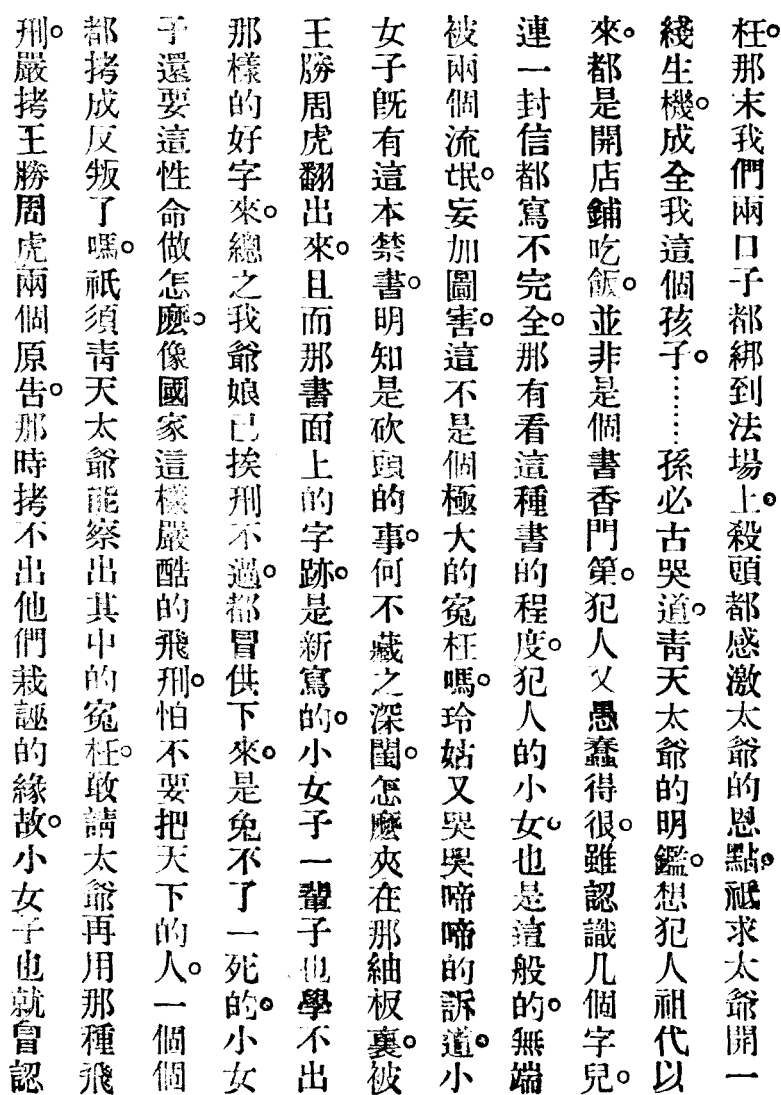 枉。那末我們兩口子都綁到法場上。殺頭都感激太爺的恩點。祗求太爺開一
綫生機。成全我這個孩子。……孫必古哭道。靑天太爺的明鑑。想犯人祖代以
來。都是開店鋪吃飯。並非是個書香門第。犯人又愚蠢得很。雖認識几個字兒。
連一封信都寫不完全。那有看這種書的程度。犯人的小女。也是這般的。無端
被兩個流氓。妄加圖害。這不是個極大的寃枉嗎。玲姑又哭哭啼啼的訴道。小
女子旣有這本禁書。明知是砍頭的事。何不藏之深閨。怎麽夾在那紬板裏。被
王勝周虎翻出來。且而那書面上的字跡。是新寫的。小女子一輩子也學不出
那樣的好字來。總之我爺娘已挨刑不過。都冒供下來。是免不了一死的。小女
子還要這性命做怎麽。像國家這樣嚴酷的飛刑。怕不要把天下的人。一個個
都拷成反叛了嗎。祇須靑天太爺能察出其中的寃枉。敢請太爺再用那種飛
刑。嚴拷王勝周虎兩個原告。那時拷不出他們栽誣的緣故。小女子也就冒認